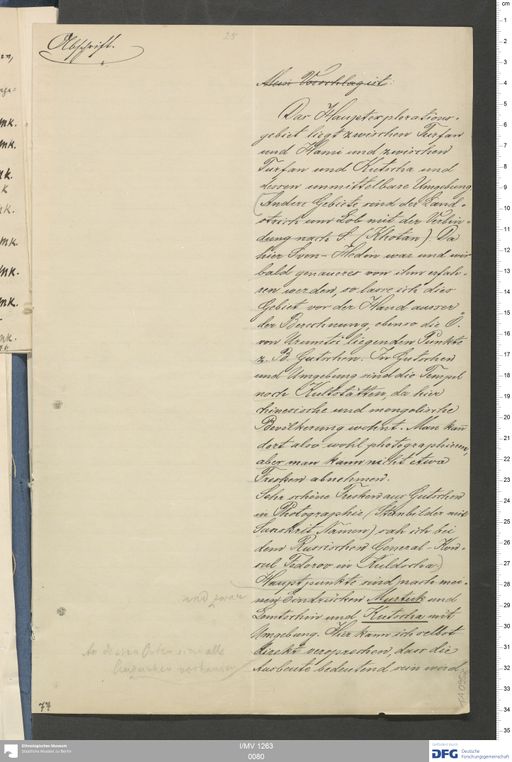 Abschrift.
25
Mein Vorschlag ist:
Das Hauptexplorations-
gebiet liegt zwischen Turfan
und Hami und zwischen
Turfan und Kutscha und
dessen unmittelbare Umgebung
Andere Gebiete sind der Land-
strich um Lob mit der Verbin-
dung nach S. (Khotan) Da
hier Sven-Hedin war und wir
bald genaueres von ihm erfah-
ren werden, so lasse ich dies
Gebiet vor der Hand ausser
der Berechnung, ebenso die O.
von Urumtsi liegenden Punkte
z. B. Gutschen. In Gutschen
und Umgebung sind die Tempel
noch Kultstätten, da hier
chinesische und mongolische
Bevölkerung wohnt. Man kann
dort also wohl photographieren,
aber man kann nicht etwa
Fresken abnehmen.
Sehr schöne Fresken aus Gutschen
in Photographie (Ahnbilder mit
Sanskrit Namen) sah ich bei
dem Russischen General-Kon-
sul Fedorov in Kuldscha)
Hauptpunkte sind nach mei-
nen Eindrücken Murtuk und
und zwar
und Kutscha mit
Umgebung. Hier kann ich selbst
direkt versprechen, dass die
Ausbeute bedeutend sein werd
An diesen Orten sind alle
vorhanden
77
I/MV 1263
0080
Ethnologisches Museum
Staatliche Museen zu Berlin
Gefördert durch
DFG Deutsche
Forschungsgemeinschaft